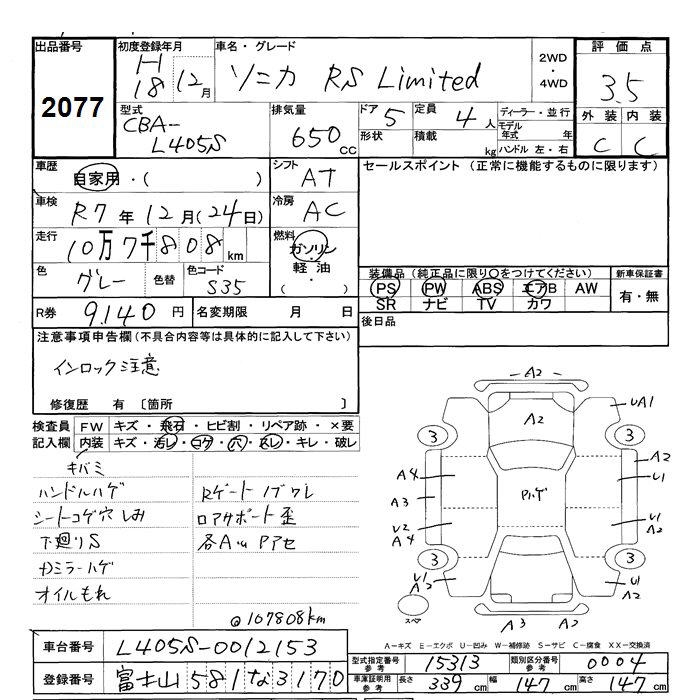 出品番号 初度登録年月 車名・グレード 2WD・4WD 評価点
2077 H18 12月 ソニカ RS Limited 3.5
型式 排気量 ドア 5 定員 4人 ディーラー・並行 外装 内装
CBA-L405S 650cc 形状 積載 kg モデル年式 年 ハンドル 左・右 C C
車歴 自家用・( ) シフト AT セールスポイント (正常に機能するものに限ります)
車検 R7年12月(24日) 冷房 AC
走行 10万7千808km 燃料 ガソリン・軽油・( )
色 グレー 色替 色コード S35
装備品 (純正品に限り○をつけてください) 新車保証書
PS PW ABS エアB AW 有・無
SR ナビ TV カワ
R券 9,140円 名変期限 月 日 後日品
注意事項申告欄(不具合内容等は具体的に記入して下さい)
インロック注意
修復歴 有 [箇所 ]
検査員 FW キズ・飛石・ヒビ割・リペア跡・×要
記入欄 内装 キズ・汚レ・コゲ・穴・スレ・キレ・破レ
キバミ
ハンドルハゲ Rゲートノブワレ
シートコゲ穴しみ ロアサポート歪
下廻りS 各A・U Pアセ
Dミラーハゲ
オイルもれ
@107808km
A2
UA1
A2
3 3
A4 A2
U1
A3 Pハゲ
U2 U1
A4 A2
3 3
U1 U1
A2 A2
スペア
A3 A2
A-キズ E-エクボ U-凹み W-補修跡 S-サビ C-腐食 XX-交換済
車台番号 L405S-0012153
型式指定番号 参考 15313 類別区分番号 参考 0004
登録番号 富士山 581 な 3170
車庫証明用 参考 長さ 339cm 幅 147cm 高さ 147cm